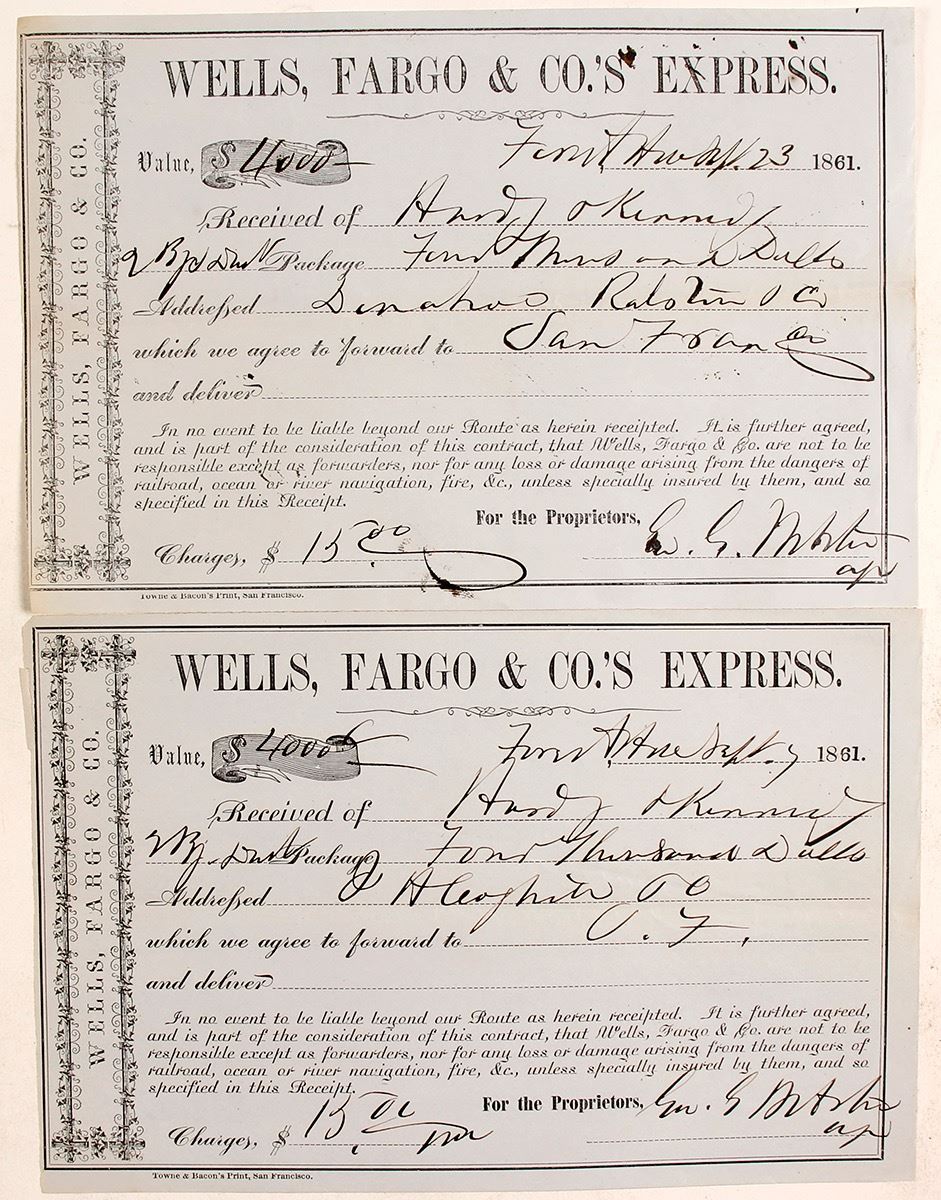 WELLS, FARGO & CO.
WELLS, FARGO & CO.'S EXPRESS.
Value, $ 4000 Forest Hill Sept. 23 1861.
Received of Hardy & Kennedy
2 Bgs Dust Package Four Thousand Dolls
Addressed Donahoe Ralston & Co
which we agree to forward to San Fran Co
and deliver
In no event to be liable beyond our Route as herein receipted. It is further agreed,
and is part of the consideration of this contract, that Wells, Fargo & Co. are not to be
responsible except as forwarders, nor for any loss or damage arising from the dangers of
railroad, ocean or river navigation, fire, &c., unless specially insured by them, and so
specified in this Receipt.
For the Proprietors,
Charges, $ 15.00 Geo. G. Webster
agt
Towne & Bacon's Print, San Francisco.
WELLS, FARGO & CO.
WELLS, FARGO & CO.'S EXPRESS.
Value, $ 4000 Forest Hill Sept. 7 1861.
Received of Hardy & Kennedy
2 Bgs Dust Package Four Thousand Dolls
Addressed & Co
which we agree to forward to S. F.
and deliver
In no event to be liable beyond our Route as herein receipted. It is further agreed,
and is part of the consideration of this contract, that Wells, Fargo & Co. are not to be
responsible except as forwarders, nor for any loss or damage arising from the dangers of
railroad, ocean or river navigation, fire, &c., unless specially insured by them, and so
specified in this Receipt.
For the Proprietors, Geo. G Webster
Charges, $ 15.00 agt
Towne & Bacon's Print, San Francisco.